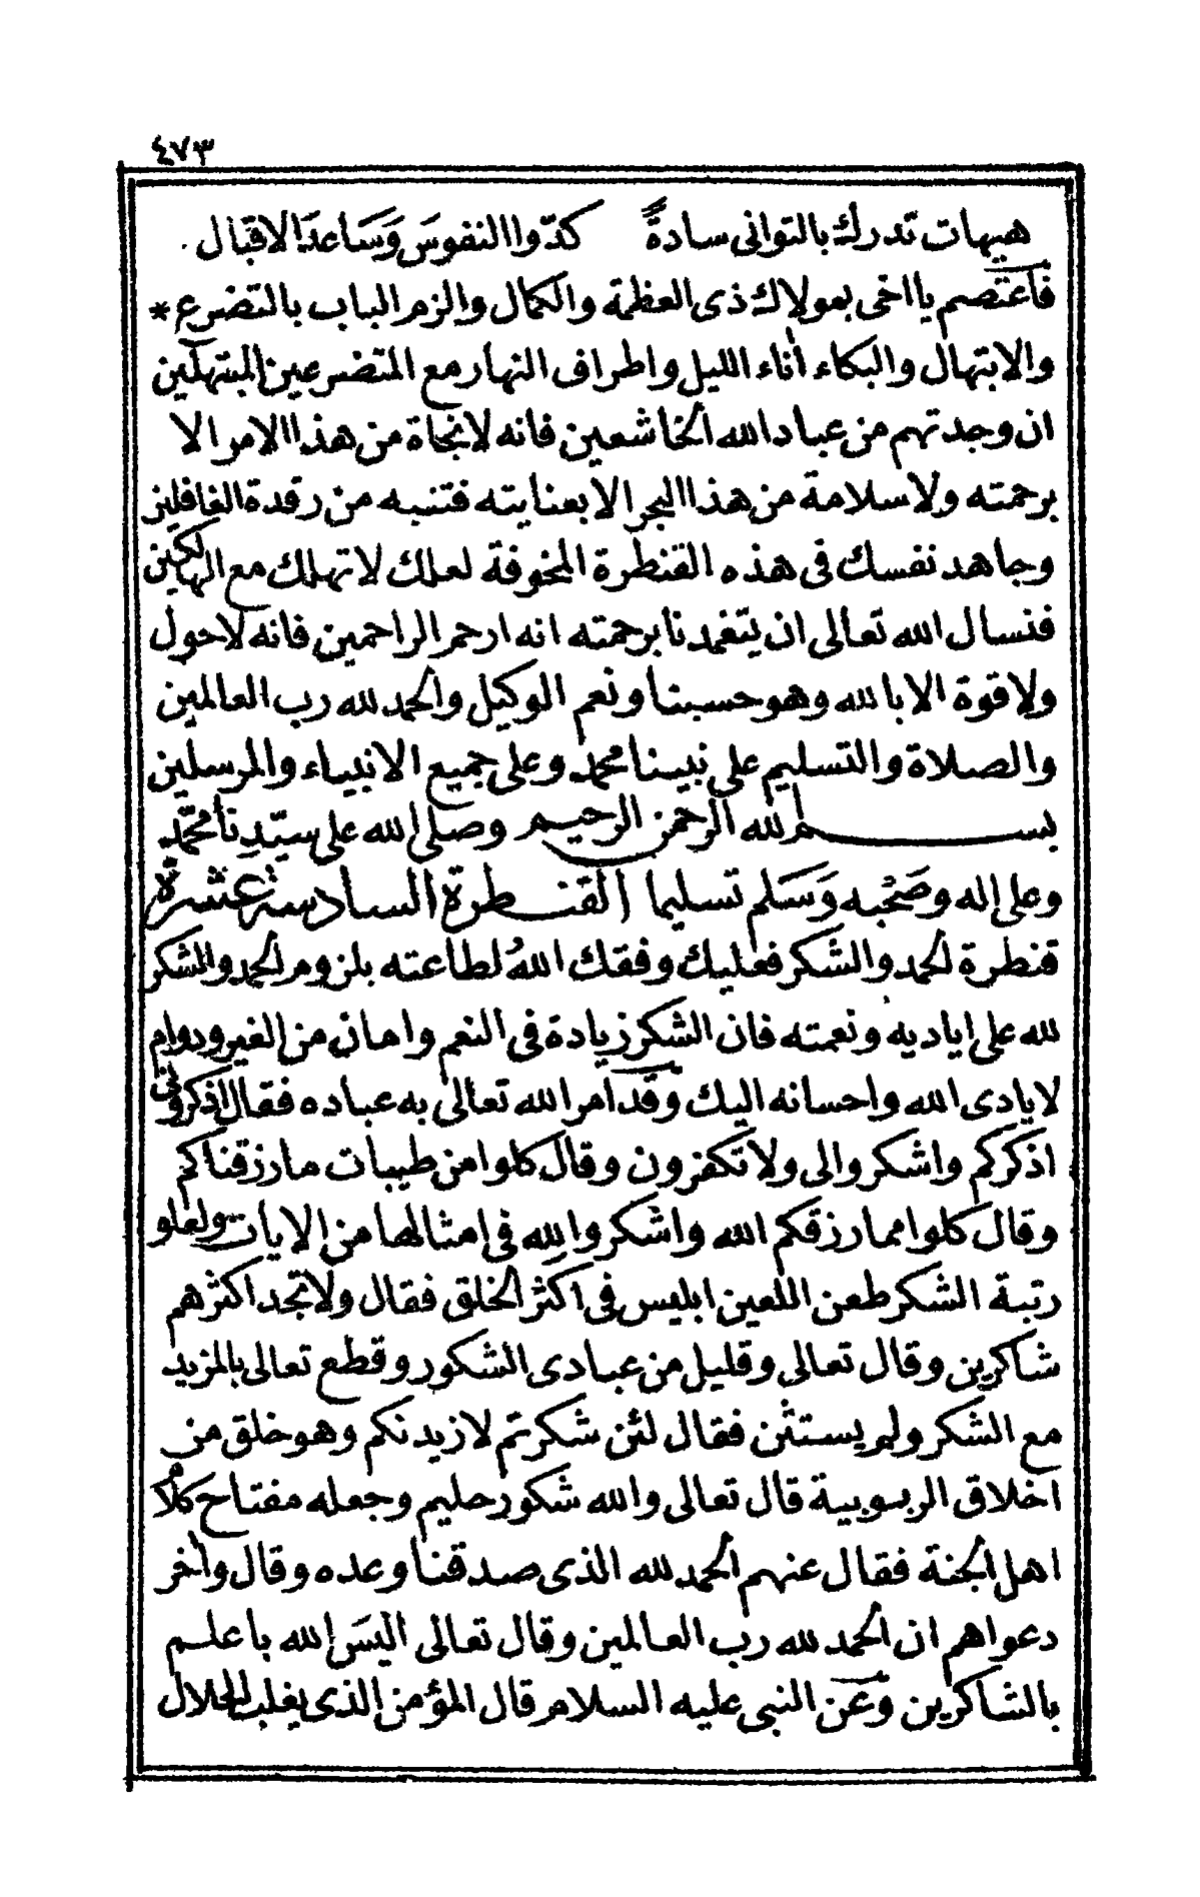 ٤٧٣
هيهات تدرك بالتوانى سادةً كدّوا النفوسَ وَسَاعدَ الاقبال
فاعتصم يا اخى بمولاك ذى العظمة والكمال والزم الباب بالتضرع *
والابتهال والبكاء أناء الليل واطراف النهار مع المتضرعين المبتهلين
ان وجدتهم من عباد الله الخاشعين فانه لا نجاة من هذا الامر الا
برحمته ولا سلامة من هذا البحر الا بعنايته فتنبه من رقدة الغافلين
وجاهد نفسك فى هذه القنطرة المخوفة لعلك لا تهلك مع الهالكين
فنسال الله تعالى ان يتغمدنا برحمته انه ارحم الراحمين فانه لا حول
ولا قوة الا بالله وهو حسبنا ونعم الوكيل والحمد لله رب العالمين
والصلاة والتسليم على نبينا محمد وعلى جميع الانبياء والمرسلين
بسم الله الرحمن الرحيم وصلى الله على سيّدِنا محمّد
وعلى اله وصَحْبه وَسَلم تسليما القنطرة السادسة عشرة
قنطرة الحمد والشكر فعليك وفقك اللهُ لطاعته بلزوم الحمد والشكر
لله على اياديه ونعمته فان الشكر زيادة فى النعم وامان من الغير ودوام
لايادى الله واحسانه اليك وقد امر الله تعالى به عباده فقال اذكرونى
اذكركم واشكروا لى ولا تكفرون وقال كلوا من طيبات ما رزقناكم
وقال كلوا مما رزقكم الله واشكروا لله فى امثالها من الايات ولعلو
رتبة الشكر طعن اللعين ابليس فى اكثر الخلق فقال ولا تجد اكثرهم
شاكرين وقال تعالى وقليل من عبادى الشكور وقطع تعالى بالمزيد
مع الشكر ولم يستثن فقال لئن شكرتم لازيدنكم وهو خلق من
اخلاق الربوبية قال تعالى والله شكور حليم وجعله مفتاح كلام
اهل الجنة فقال عنهم الحمد لله الذى صدقنا وعده وقال وأخر
دعواهم ان الحمد لله رب العالمين وقال تعالى اليسَ الله باعلم
بالشاكرين وعن النبى عليه السلام قال المؤمن الذى يغلب الحلال